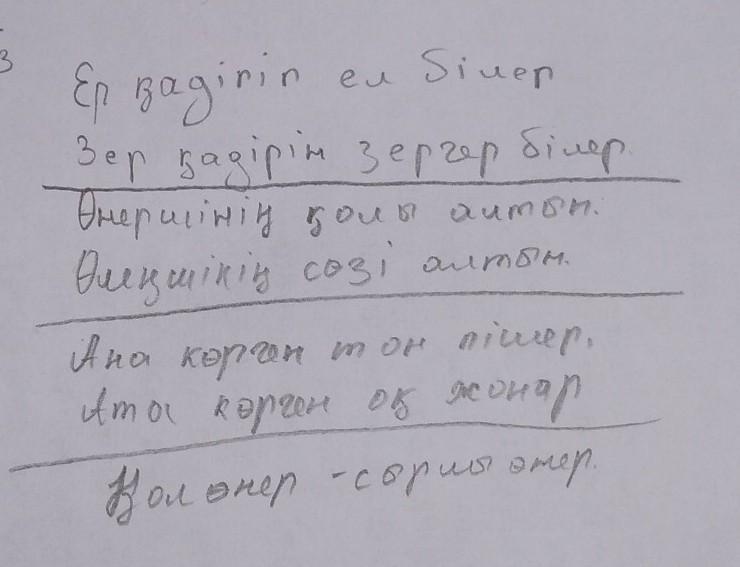 з
Ер қадірін ел білер
Зер қадірін зергер білер.
Өнершінің қолы алтын.
Өлеңшінің сөзі алтын.
Ана көрген тон пішер,
Ата көрген оқ жонар
Қол өнер - сырлы өнер.